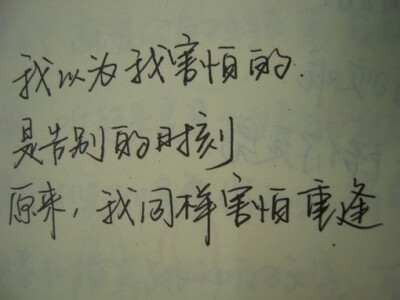 我以为我害怕的.
是告别的时刻
原来,我同样害怕重逢